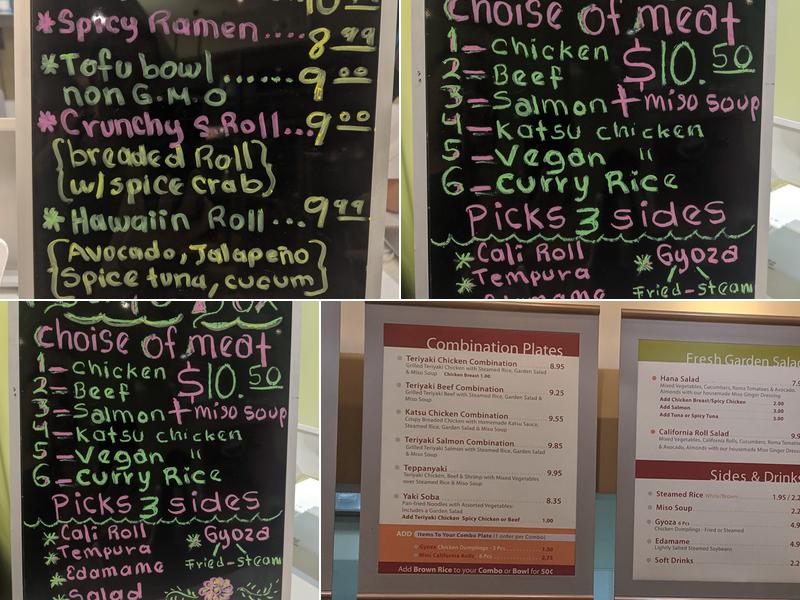 *Spicy Ramen.... 8 99
*Tofu bowl ...... 9 00
non G.M.O
*Crunchy s Roll... 9 00
{breaded Roll}
{w/ spice crab}
*Hawaiin Roll... 9 99
{Avocado, Jalapeño}
{Spice tuna, cucum}
Choise of meat
1 - Chicken $10.50
2 - Beef
3 - Salmon + miso soup
4 - Katsu chicken
5 - Vegan "
6 - Curry Rice
Picks 3 sides
* Cali Roll * Gyoza
Tempura Fried - Steam
Edamame
Choise of meat
1 - Chicken $10.50
2 - Beef
3 - Salmon + miso soup
4 - Katsu chicken
5 - Vegan "
6 - Curry Rice
Picks 3 sides
* Cali Roll * Gyoza
Tempura Fried - Steam
* Edamame
Salad
Combination Plates
Teriyaki Chicken Combination 8.95
Grilled Teriyaki Chicken with Steamed Rice, Garden Salad
& Miso Soup Chicken Breast 1.00
Teriyaki Beef Combination 9.25
Grilled Teriyaki Beef with Steamed Rice, Garden Salad &
Miso Soup
Katsu Chicken Combination 9.55
Crispy Breaded Chicken with Homemade Katsu Sauce,
Steamed Rice, Garden Salad & Miso Soup
Teriyaki Salmon Combination 9.85
Grilled Teriyaki Salmon with Steamed Rice, Garden Salad
& Miso Soup
Teppanyaki 9.95
Teriyaki Chicken, Beef & Shrimp with Mixed Vegetables
over Steamed Rice & Miso Soup
Yaki Soba 8.35
Pan-fried Noodles with Assorted Vegetables:
Includes a Garden Salad
Add Teriyaki Chicken Spicy Chicken or Beef 1.00
ADD Items To Your Combo Plate (1 order per Combo)
Gyoza Chicken Dumplings - 3 Pcs 1.50
Mini California Rolls - 6 Pcs 2.75
Add Brown Rice to your Combo or Bowl for 50¢
Fresh Garden Salad
Hana Salad 7.9
Mixed Vegetables, Cucumbers, Roma Tomatoes & Avocado,
Almonds with our housemade Miso Ginger Dressing
Add Chicken Breast/Spicy Chicken 2.00
Add Salmon 3.00
Add Tuna or Spicy Tuna 3.00
California Roll Salad 9.9
Mixed Vegetables, California Rolls, Cucumbers, Roma Tomatoes
& Avocado, Almonds with our housemade Miso Ginger Dre
Sides & Drinks
Steamed Rice White/Brown 1.95 / 2.2
Miso Soup 2.2
Gyoza 6 Pcs 4.9
Chicken Dumplings - Fried or Steamed
Edamame 4.9
Lightly Salted Steamed Soybeans
Soft Drinks 2.2